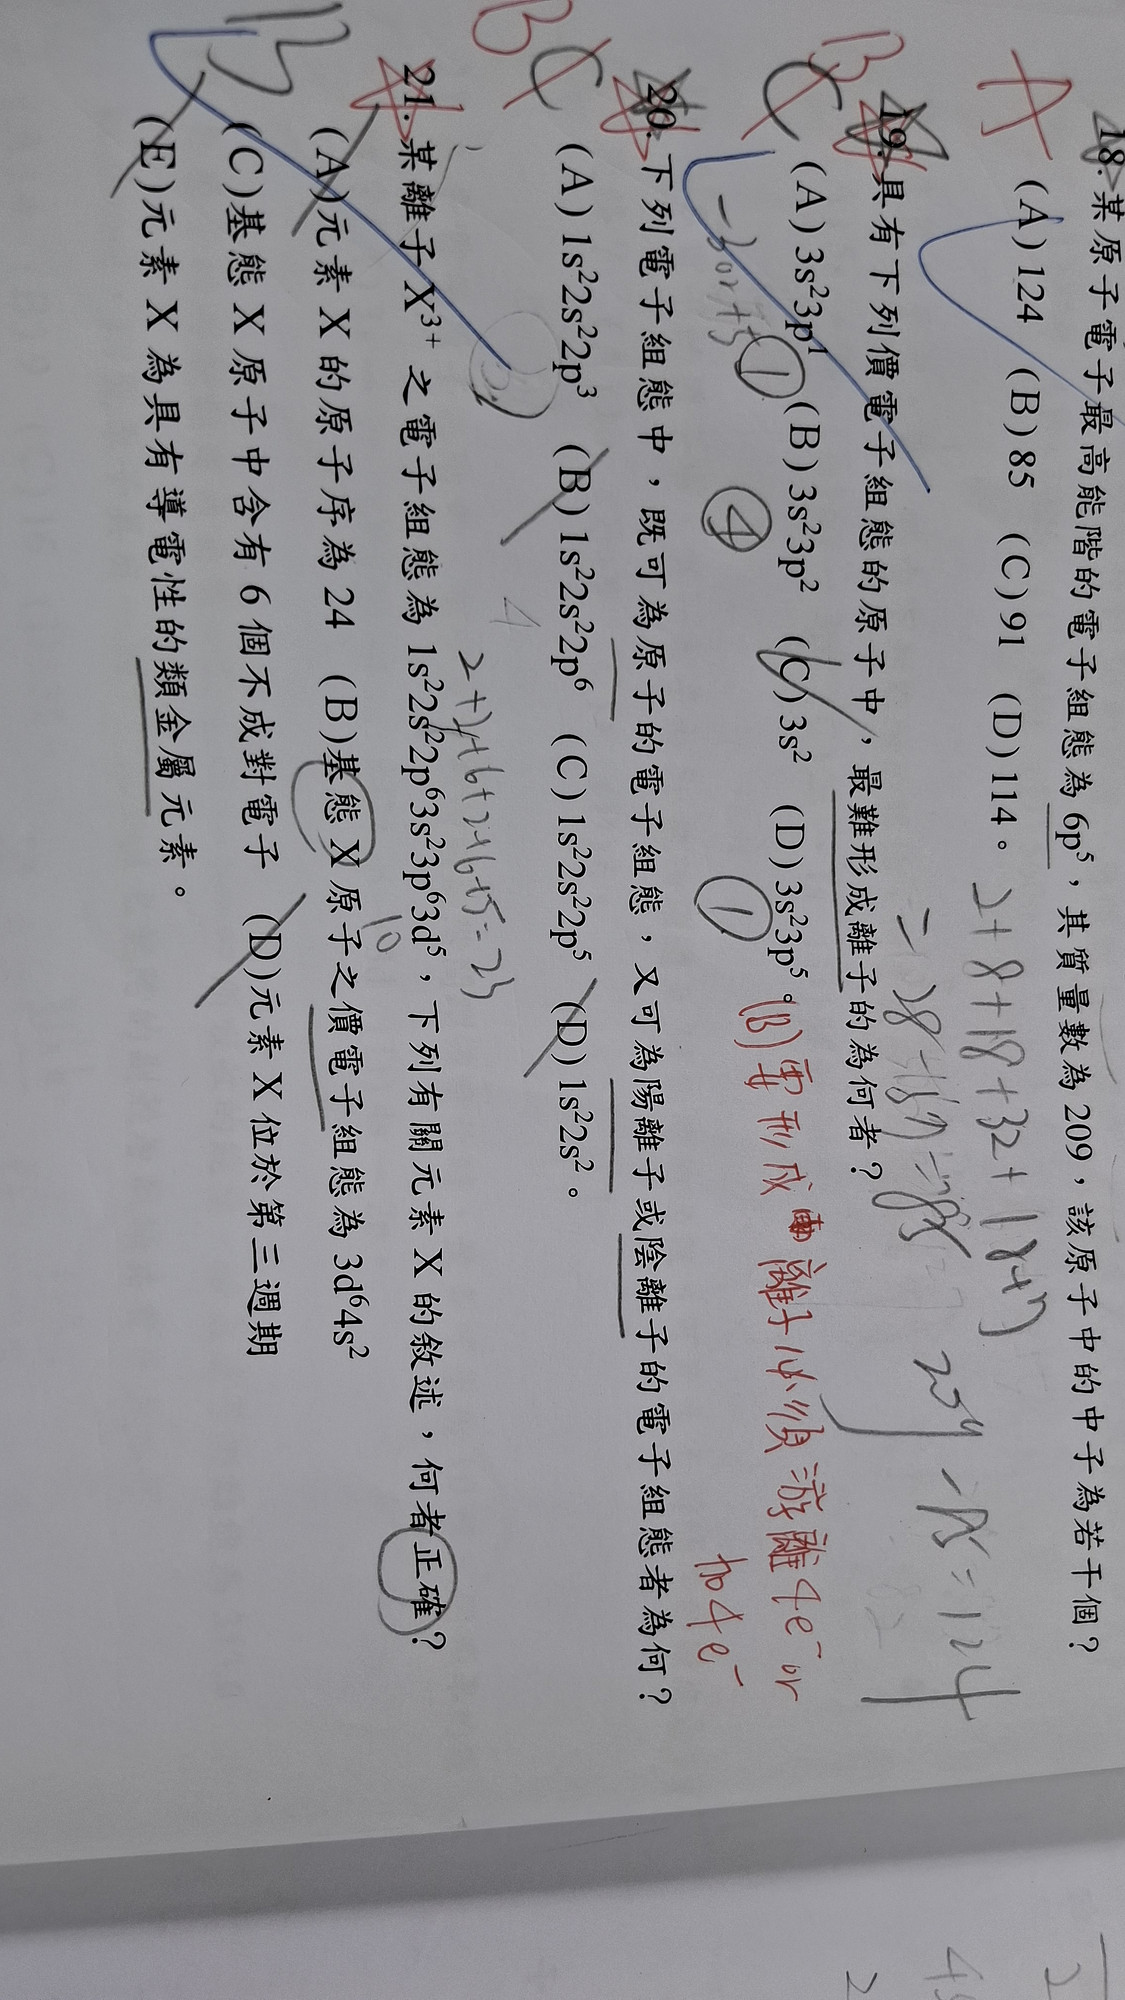 18.某原子電子最高能階的電子組態為 6p⁵，其質量數為 209，該原子中的中子為若干個？
A
(A)124 (B)85 (C)91 (D)114。
2+8+18+32+18+7
=85
209-85=124
19.具有下列價電子組態的原子中，最難形成離子的為何者？
B
C
(A)3s²3p¹ (B)3s²3p² (C)3s² (D)3s²3p⁵。
(B)要形成離子必須游離4e⁻or
加4e⁻
-3or+5 ① ④ ①
20.下列電子組態中，既可為原子的電子組態，又可為陽離子或陰離子的電子組態者為何？
B
C
(A)1s²2s²2p³ (B)1s²2s²2p⁶ (C)1s²2s²2p⁵ (D)1s²2s²。
4
2+2+6+2+6+5=23
21.某離子 X³⁺ 之電子組態為 1s²2s²2p⁶3s²3p⁶3d⁵，下列有關元素 X 的敘述，何者正確？
10
B
(A)元素 X 的原子序為 24 (B)基態 X 原子之價電子組態為 3d⁶4s²
(C)基態 X 原子中含有 6 個不成對電子 (D)元素 X 位於第三週期
(E)元素 X 為具有導電性的類金屬元素。